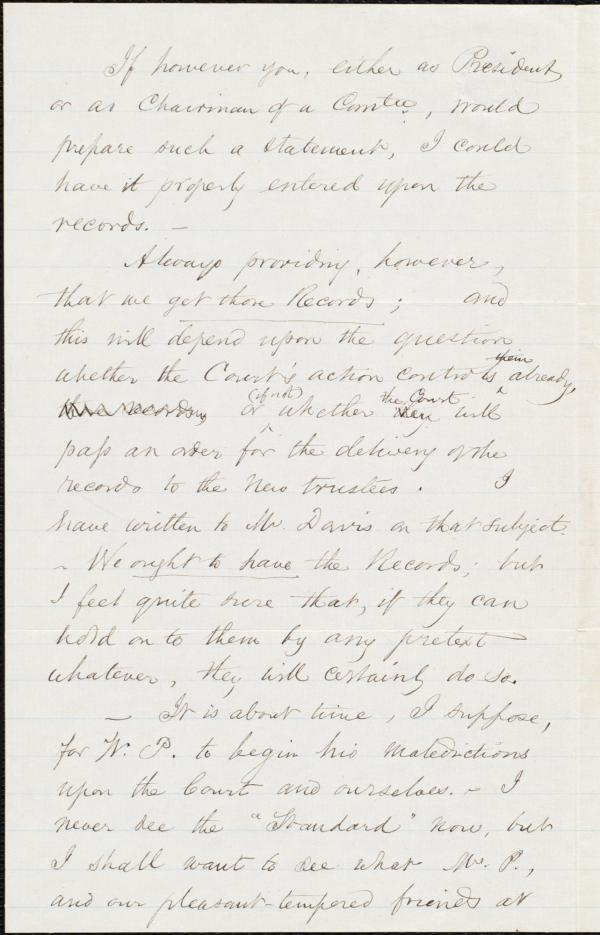 If however you, either as President,
or as Chairman of a Comtee, would
prepare such a statement, I could
have it properly entered upon the
records. –
Always providing, however,
that we get those Records; and
this will depend upon the question
whether the Court's action controls them already,
the records, or (if not) whether the Court will
pass an order for the delivery of the
records to the new trustees. I
have written to Mr. Davis on that subject.
– We ought to have the Records; but
I feel quite sure that, if they can
hold on to them by any pretext
whatever, they will certainly do so.
– It is about time, I suppose,
for W. P. to begin his maledictions
upon the Court and ourselves. – I
never see the "Standard" now, but
I shall want to see what Mr. P.,
and our pleasant-tempered friends at